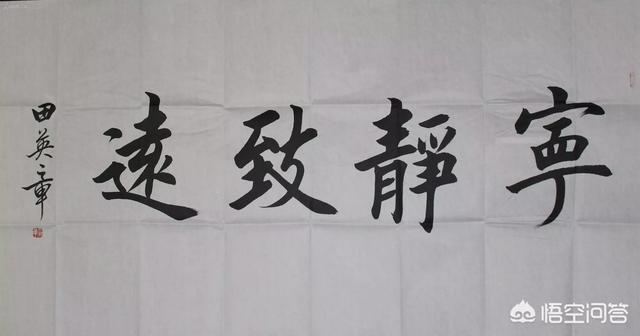 寧靜致遠
田英章
悟空问答